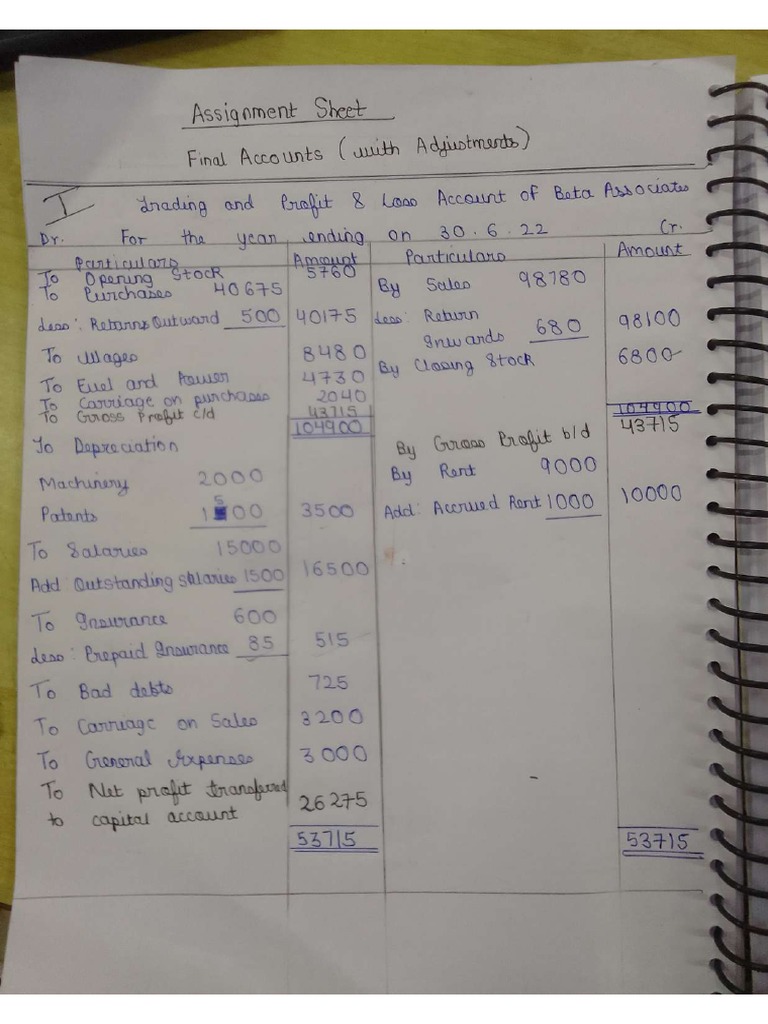 Assignment Sheet
Final Accounts (with Adjustments)
I Trading and Profit & Loss Account of Beta Associates
Dr. For the year ending on 30.6.22 Cr.
Particulars Amount Particulars Amount
To Opening Stock 5760 By Sales 98780
To Purchases 40675
Less: Returns Outward 500 40175 Less: Return
Inwards 680 98100
To Wages 8480 By Closing Stock 6800
To Fuel and Power 4730
To Carriage on purchases 2040
To Gross Profit c/d 43715 104900
104900 By Gross Profit b/d 43715
To Depreciation
Machinery 2000 By Rent 9000
Patents 1500 3500 Add: Accrued Rent 1000 10000
To Salaries 15000
Add Outstanding Salaries 1500 16500
To Insurance 600
Less: Prepaid Insurance 85 515
To Bad debts 725
To Carriage on Sales 3200
To General Expenses 3000
To Net profit transferred
to capital account 26275
53715 53715